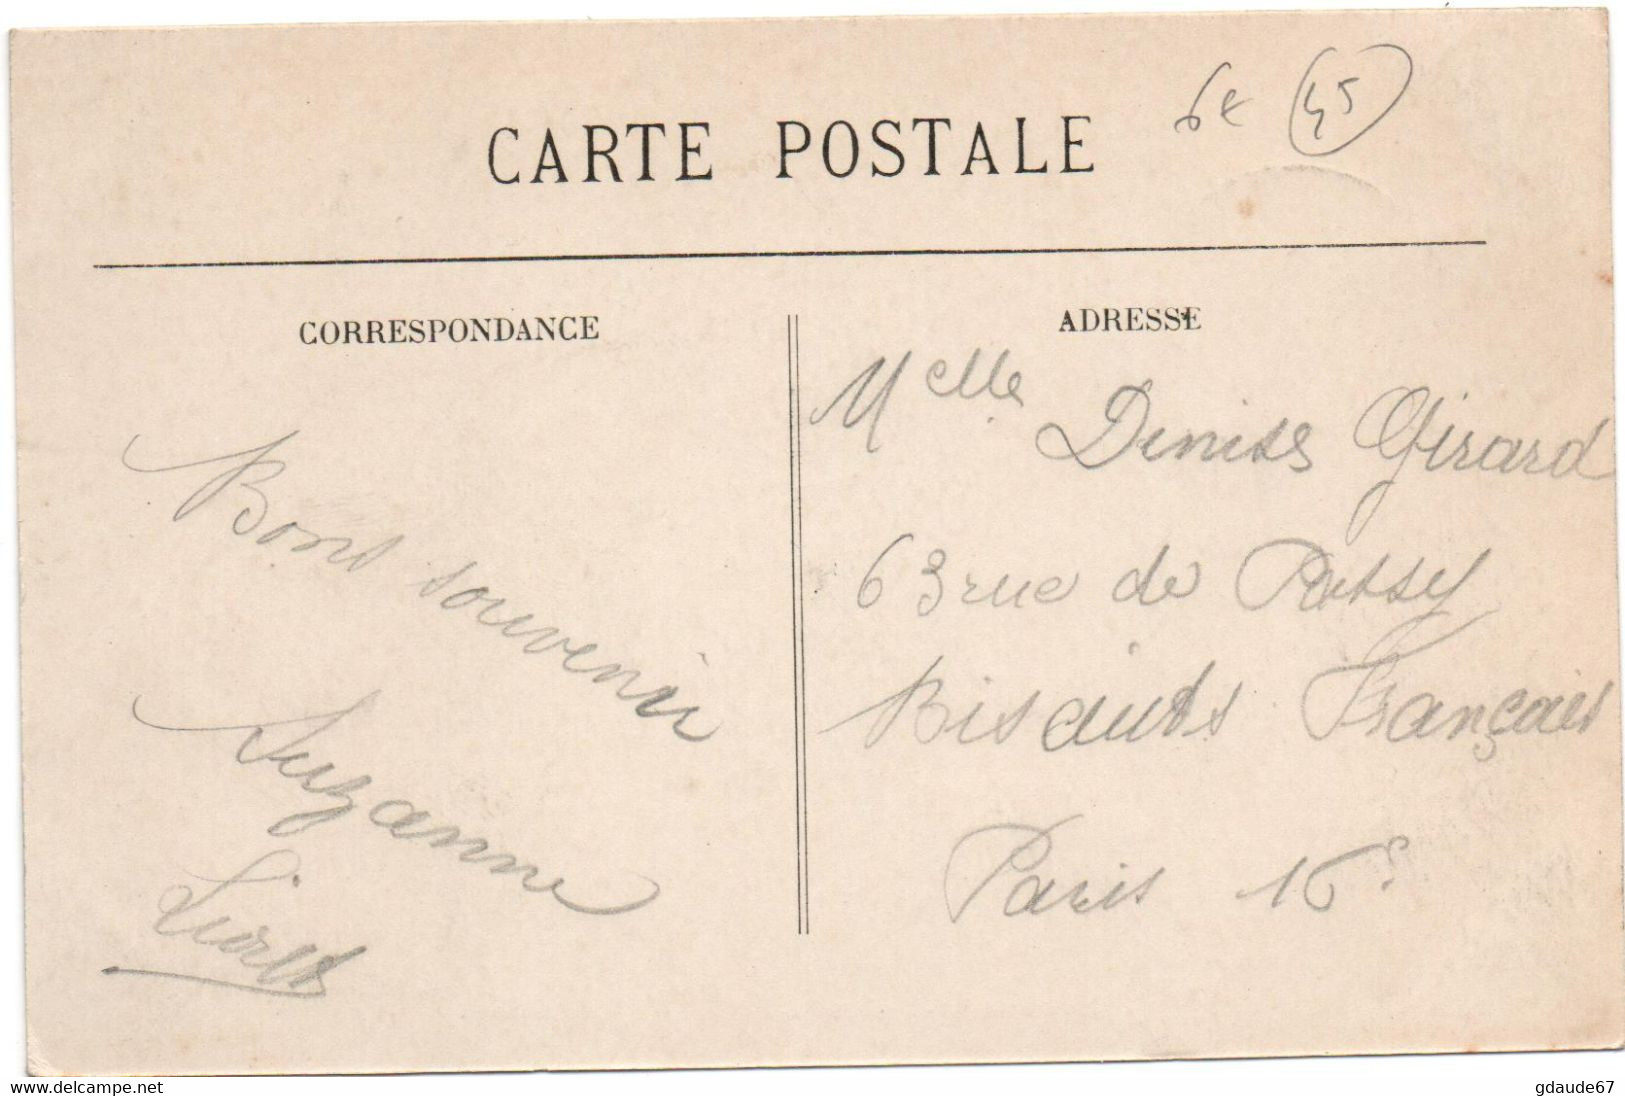 6€ 45
CARTE POSTALE
CORRESPONDANCE
ADRESSE
Bons souvenir
Suzanne
Melle Denise Girard
63 rue de Passy
Biscuits Français
Paris 16e
www.delcampe.net
gdaude67